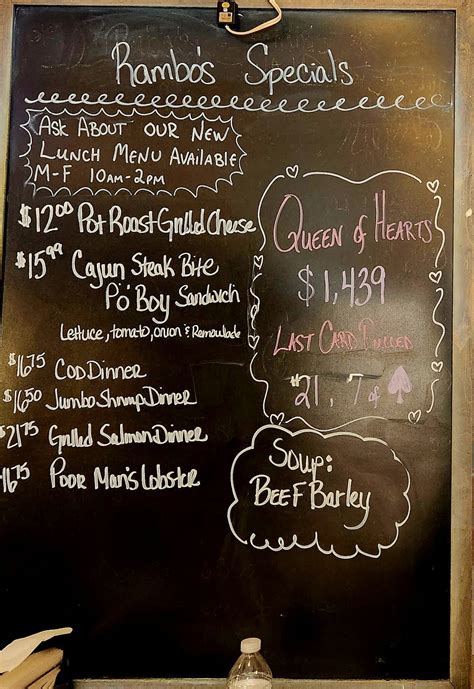 Rambo's Specials
Ask About our New
Lunch Menu Available
M-F 10am-2pm
$12.00 Pot Roast Grilled Cheese
$15.99 Cajun Steak Bite
Po' Boy Sandwich
Lettuce, tomato, onion & Remoulade
$16.75 Cod Dinner
$16.50 Jumbo Shrimp Dinner
$21.75 Grilled Salmon Dinner
16.75 Poor Man's Lobster
Queen of Hearts
$1,439
Last Card Pulled
#21, 7 of ♠
Soup:
Beef Barley